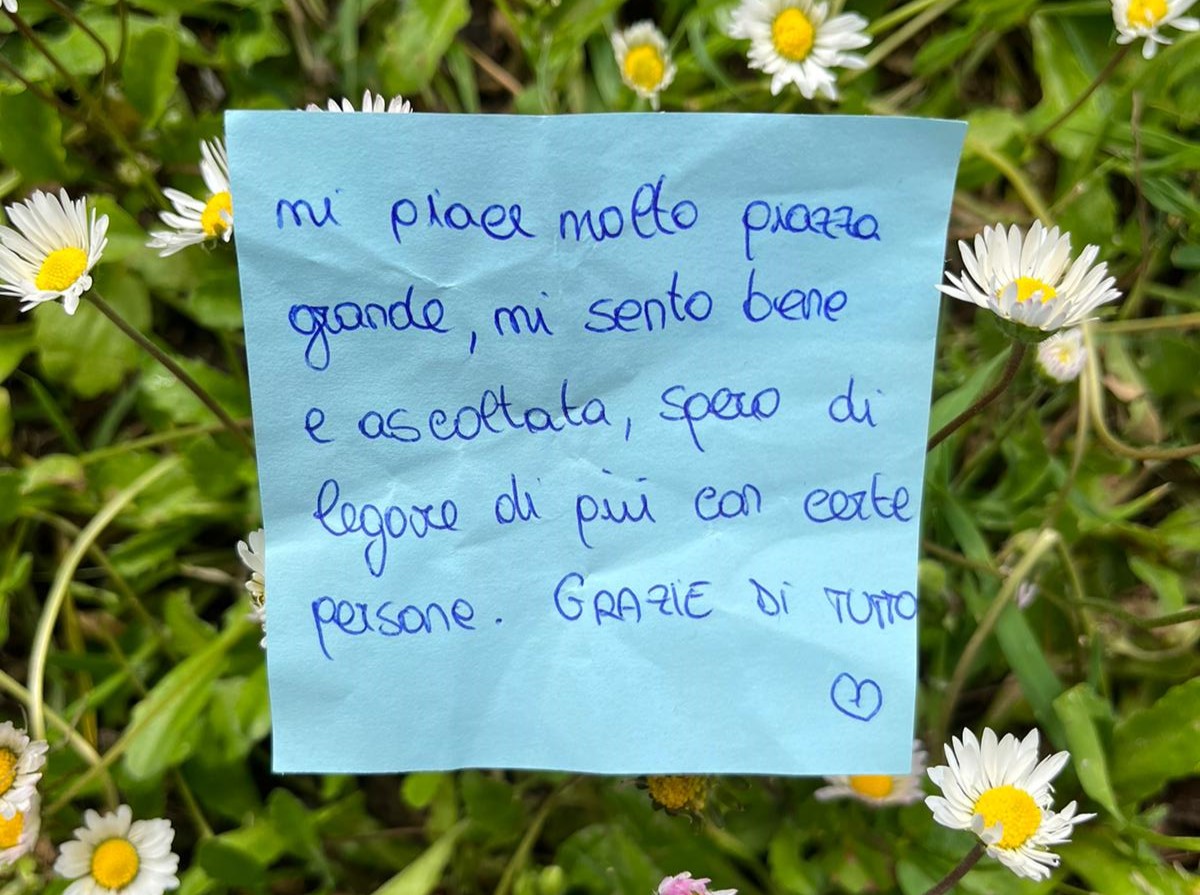 mi piace molto piazza
grande, mi sento bene
e ascoltata, spero di
legare di più con certe
persone. GRAZIE DI TUTTO
♡